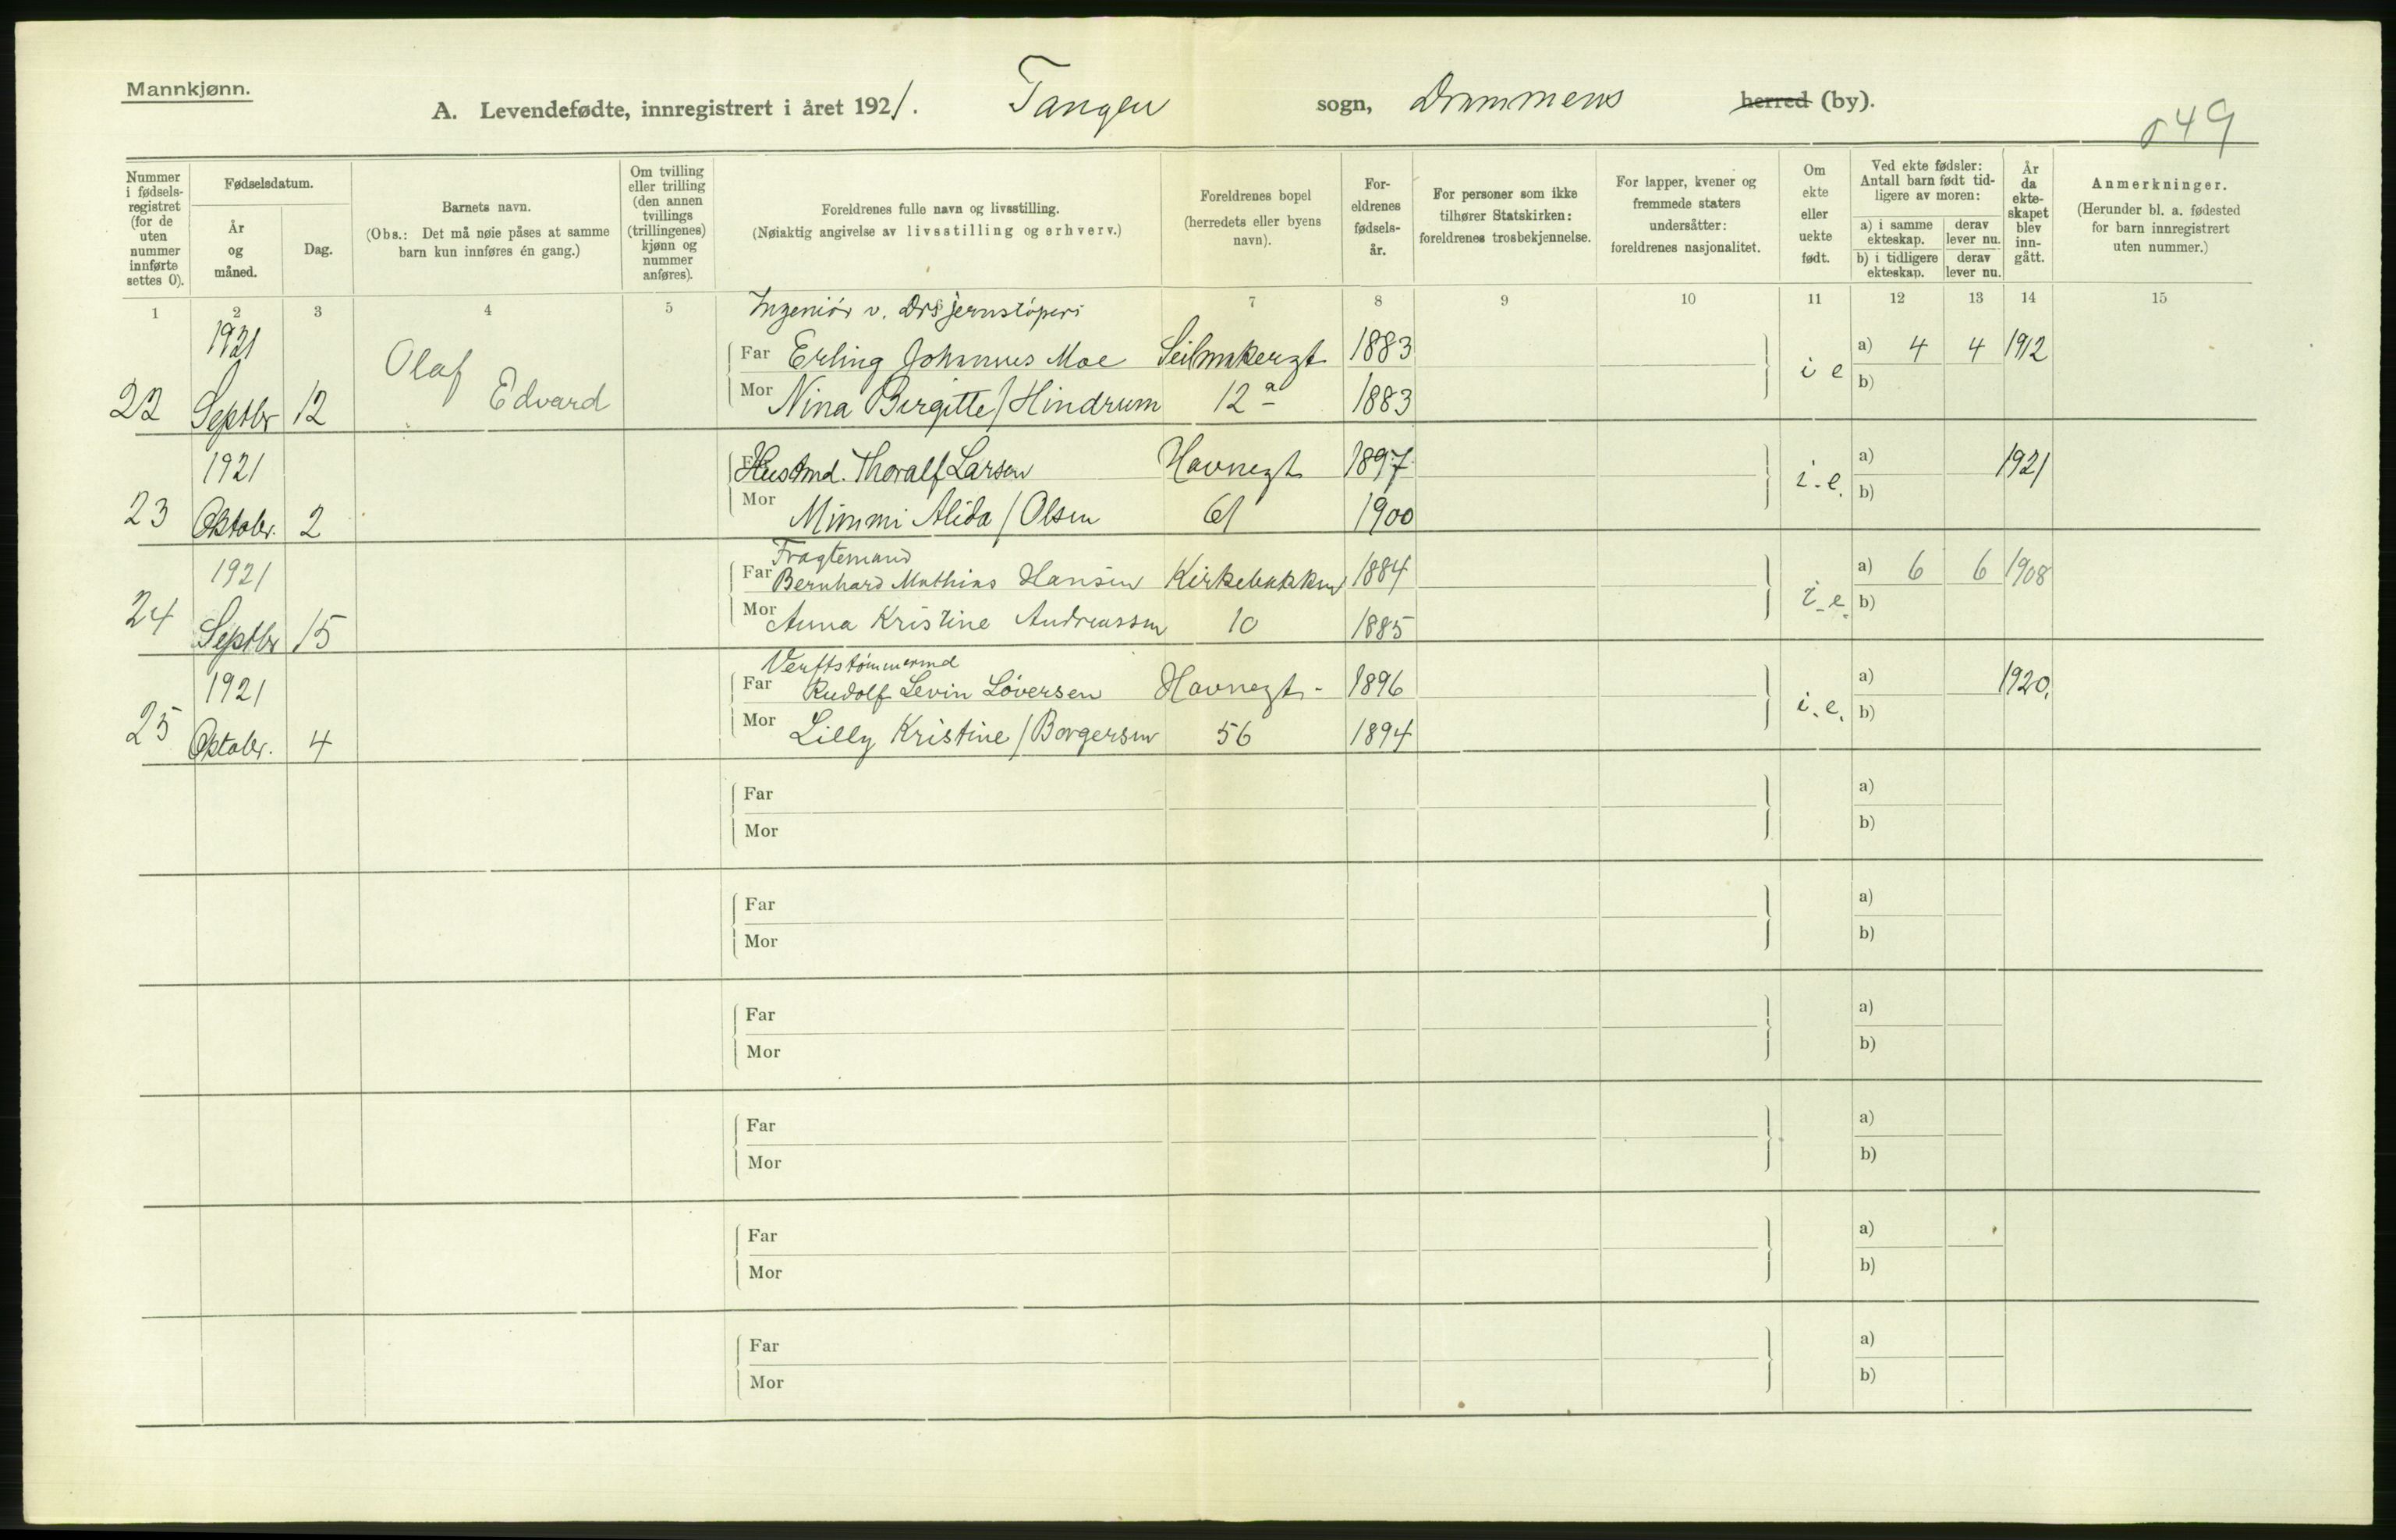 Mannkjønn.
A. Levendefødte, innregistrert i året 1921. Tangen sogn, Drammens herred (by).
049
Nummer i fødselsregistret (for de uten nummer innførte settes 0).
Fødselsdatum.
År og måned.
Dag.
Barnets navn.
(Obs.: Det må nøie påses at samme barn kun innføres én gang.)
Om tvilling eller trilling (den annen tvillings (trillingenes) kjønn og nummer anføres).
Foreldrenes fulle navn og livsstilling.
(Nøiaktig angivelse av livsstilling og erhverv.)
Foreldrenes bopel (herredets eller byens navn).
Foreldrenes fødselsår.
For personer som ikke tilhører Statskirken: foreldrenes trosbekjennelse.
For lapper, kvener og fremmede staters undersåtter: foreldrenes nasjonalitet.
Om ekte eller uekte født.
Ved ekte fødsler: Antall barn født tidligere av moren:
a) i samme ekteskap. derav lever nu.
b) i tidligere ekteskap. derav lever nu.
År da ekteskapet blev inngått.
Anmerkninger.
(Herunder bl. a. fødested for barn innregistrert uten nummer.)
1 2 3 4 5 6 7 8 9 10 11 12 13 14 15
Ingeniør v. Drs jernstøperi
1921 Olaf Far Erling Johannes Moe Seilmakergt 1883 i e a) 4 4 1912
22 Septbr 12 Edvard Mor Nina Birgitte / Hindrum 12 a 1883 b)
1921 Far Husmd. Thoralf Larsen Havnegt 1897 i.e. a) 1921
23 Oktober. 2 Mor Mimmi Alida / Olsen 61 1900 b)
Fragtemand
1921 Far Bernhard Mathias Hansen Kirkebakken 1884 i.e. a) 6 6 1908
24 Septbr 15 Mor Anna Kristine Andreassen 10 1885 b)
Verftstømmermd
1921 Far Rudolf Levin Løversen Havnegt. 1896 i.e. a) 1920.
25 Oktober. 4 Mor Lilly Kristine / Borgersen 56 1894 b)
Far a)
Mor b)
Far a)
Mor b)
Far a)
Mor b)
Far a)
Mor b)
Far a)
Mor b)
Far a)
Mor b)